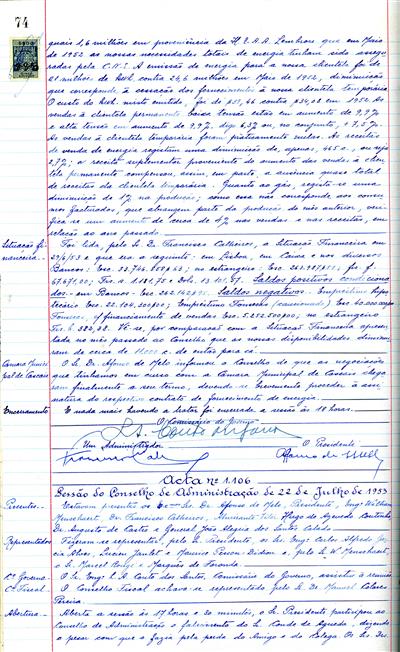 74
quais 1,6 milhões em proveniência da H.E.A.A. Lembrou que em Maio
de 1952 as nossas necessidades totais de energia tinham sido assegu-
radas pela C.N.E. A emissão de energia para a nossa clientela foi de
21 milhões de kwh. contra 24,6 milhões em Maio de 1952, diminuição
que corresponde à cessação dos fornecimentos à nossa clientela temporária.
O custo do kwh. misto emitido, foi de
vendas à clientela permanente baixa tensão estão em aumento de 9,9%
e alta tensão em aumento de 9,9%, ou no conjunto
As vendas à clientela temporária foram praticamente nulas. As receitas
de venda de energia registam uma diminuição de, apenas, 465 c., ou seja
2,7%; a receita suplementar proveniente do aumento das vendas à clien-
tela permanente compensou, assim, em parte, a ausência quase total
de receitas da clientela temporária. Quanto ao gás, regista-se uma
diminuição de 1% na produção, como essa não corresponde aos consu-
mos facturados, que abrangem parte da produção do mês anterior, veri-
fica-se um aumento de cerca de 4% nas vendas e nas receitas, em
relação ao ano passado.
Situação fi-
nanceira.
Foi lida, pelo Sr. Dr. Francisco Calheiros, a Situação Financeira em
29/6/53 e que era a seguinte: em Lisboa, em Caixa e nos diversos
Bancos: Esc.
Saldos positivos condiciona-
dos - em Bancos: Esc. Saldos negativos: Empréstimo
Esc. 22.104.200$00; Empréstimo Fomento (caucionado) Esc. 60.000 contos
Fomento, c/ financiamento de vendas Esc. 5.272.500$00; no estrangeiro
Vê-se, por comparação com a Situação Financeira apresen-
tada no mês passado ao Conselho que as nossas disponibilidades diminui-
ram de cerca de 11.000 c. de então para cá.
Câmara Munici-
pal de Cascais
O Sr. Dr. Afonso de Melo informou o Conselho de que as negociações
que tínhamos em curso com a Câmara Municipal de Cascais chega-
ram finalmente a seu termo, devendo-se brevemente proceder à assi-
natura do respectivo contrato de fornecimento de energia.
Encerramento
E nada mais havendo a tratar foi encerrada a sessão às 18 horas.
O Comissário do Governo
Um Administrador
O Presidente
Acta nº 1.106
Sessão do Conselho de Administração de 22 de Julho de 1953
Presentes
Estavam presentes os Exmos. Srs. Dr. Afonso de Melo, Presidente, Engº William
Menschaert, Dr. Francisco Calheiros, Almirante Hugo de Azevedo Coutinho,
Dr. Augusto de Castro e General José Alegria dos Santos Calado.
Representados
Fizeram-se representar, pelo Sr. Presidente, os Srs. Engº Carlos Alfredo
Alves, Lucien Janlet e Maurice Pesson-Didion e, pelo Sr. W. Menschaert,
o Sr. Marcel e Marquês de Faronda.
C. Governo
O Sr. Engº J. A. Couto dos Santos, Comissário do Governo, assistiu à reunião
C. Fiscal
O Conselho Fiscal achava-se representado pelo Sr. Dr. Manuel Colares
Pereira
Abertura
Aberta a sessão às 17 horas e 20 minutos, o Sr. Presidente participou ao
Conselho de Administração o falecimento do Sr. Conde de Agueda, dizendo
o pesar com que o fazia pela perda do Amigo e do Colega. Os Srs. Drs.